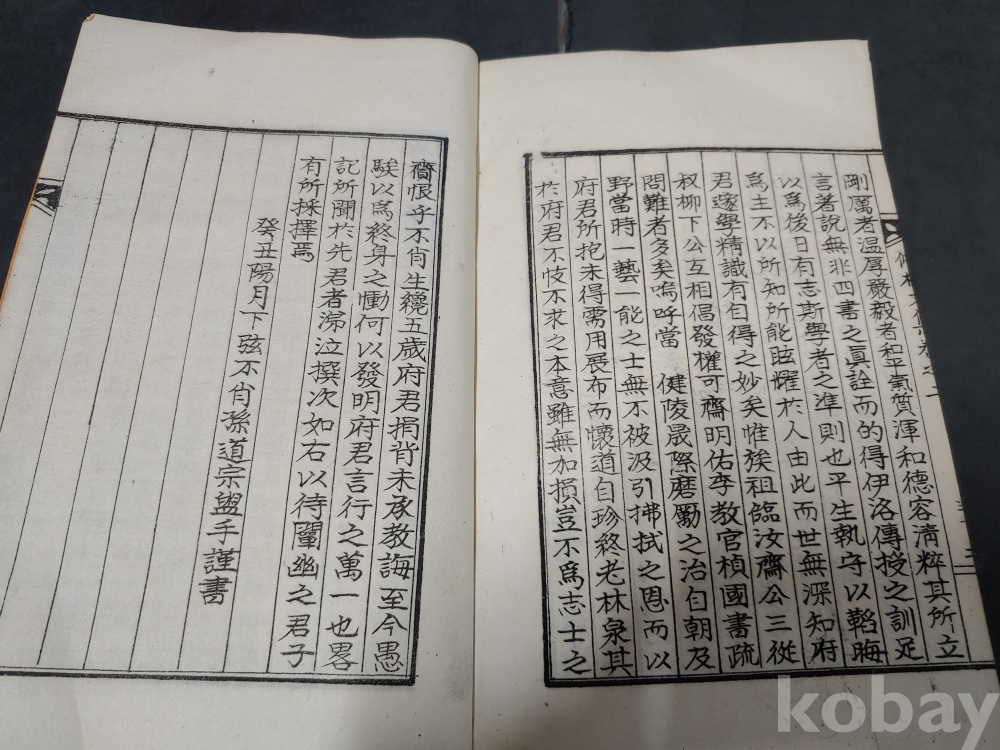 剛厲者溫厚嚴毅者和平氣質渾和德容淸粹其所立
言著說無非四書之眞詮而的得伊洛傳授之訓足
以爲後日有志斯學者之準則也平生執守以韜晦
爲主不以所知所能眩耀於人由此而世無深知府
君邃學精識有自得之妙矣惟族祖臨汝齋公三從
叔柳下公互相倡發權可齋明佑李敎官楨國書疏
問難者多矣嗚呼當 健陵晟際磨勵之治自朝及
野當時一藝一能之士無不被汲引拂拭之恩而以
府君所抱未得需用展布而懷道自珍終老林泉其
於府君不忮不求之本意雖無加損豈不爲志士之
齎恨乎不肖生纔五歲府君捐背未承敎誨至今愚
騃以爲終身之慟何以發明府君言行之萬一也畧
記所聞於先君者涕泣撰次如右以待闡幽之君子
有所採擇焉
癸丑陽月下弦不肖孫道宗盥手謹書
kobay